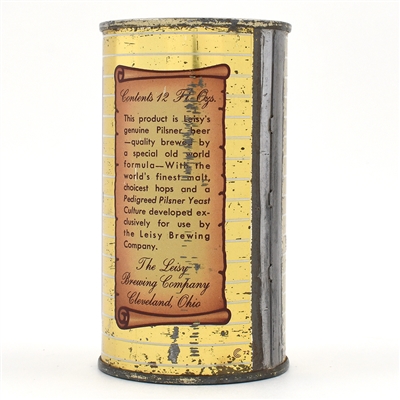 Contents 12 Fl. Ozs.
This product is Leisy's
genuine Pilsner beer
—quality brewed by
a special old world
formula—With the
world's finest malt,
choicest hops and a
Pedigreed Pilsner Yeast
Culture developed ex-
clusively for use by
the Leisy Brewing
Company.
The Leisy
Brewing Company
Cleveland, Ohio